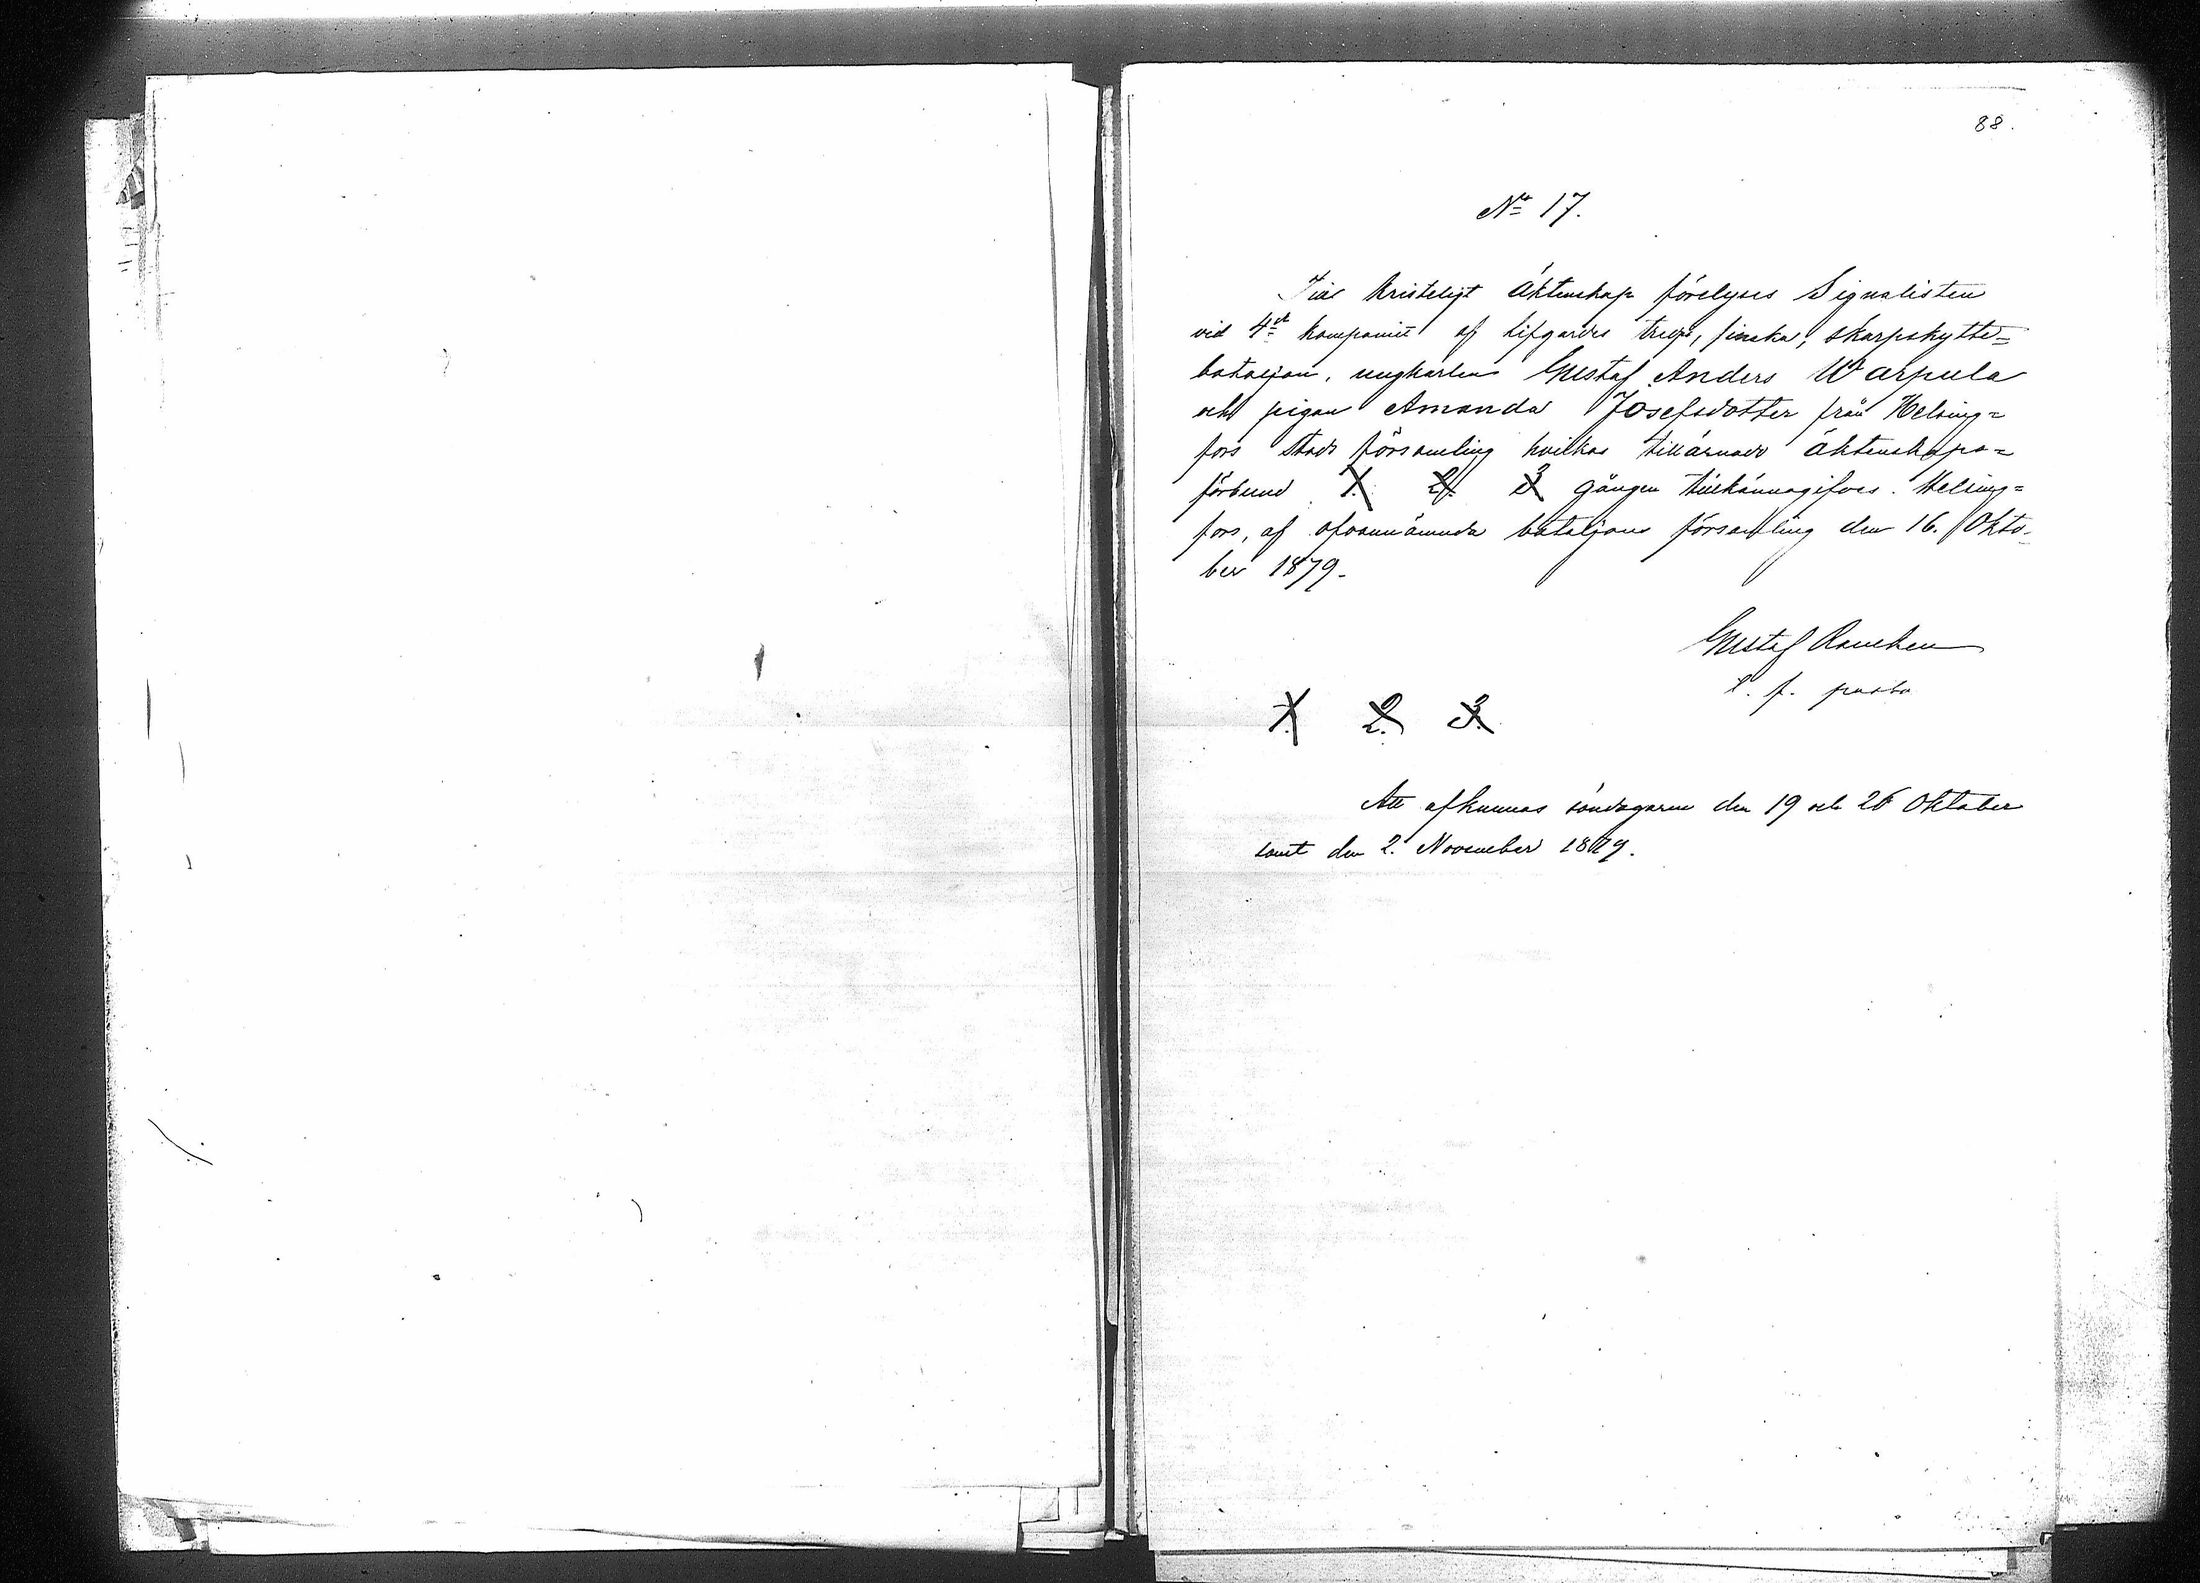 88.
No 17.
Till kristeligt äktenskap förelyses Signalisten
vid 4de kompaniet af Lifgardes tredje, finska, skarpskytte=
bataljon, ungkarlen Gustaf Anders Warpula
och pigan Amanda Josefsdotter från Helsing=
fors stads församling hvilkas tillärnade äktenskaps=
förbund 1. 2. 3 gången tillkännagifves. Helsing=
fors, af ofvannämnda bataljons församling den 16. Okto-
ber 1879.
Gustaf
1. 2. 3.
Att afkunnas söndagarne den 19 och 26 Oktober
samt den 2. November 1879.